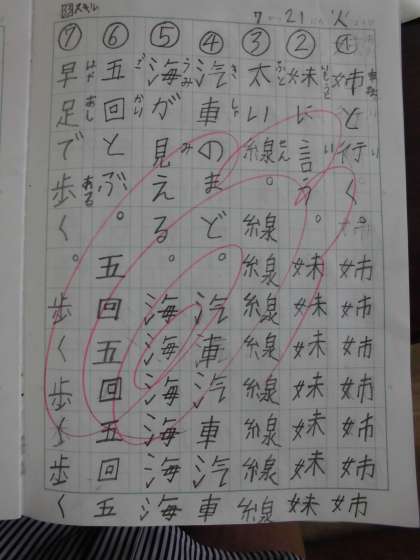 漢スキル
7 21 火
①姉と行く。姉姉姉姉姉姉
②妹に言う。妹妹妹妹妹妹
③太い線。線線線線線線線
④汽車のまど。汽車汽車汽車
⑤海が見える。海海海海海海
⑥五回とぶ。五回五回五回五
⑦早足で歩く。歩く歩く歩く